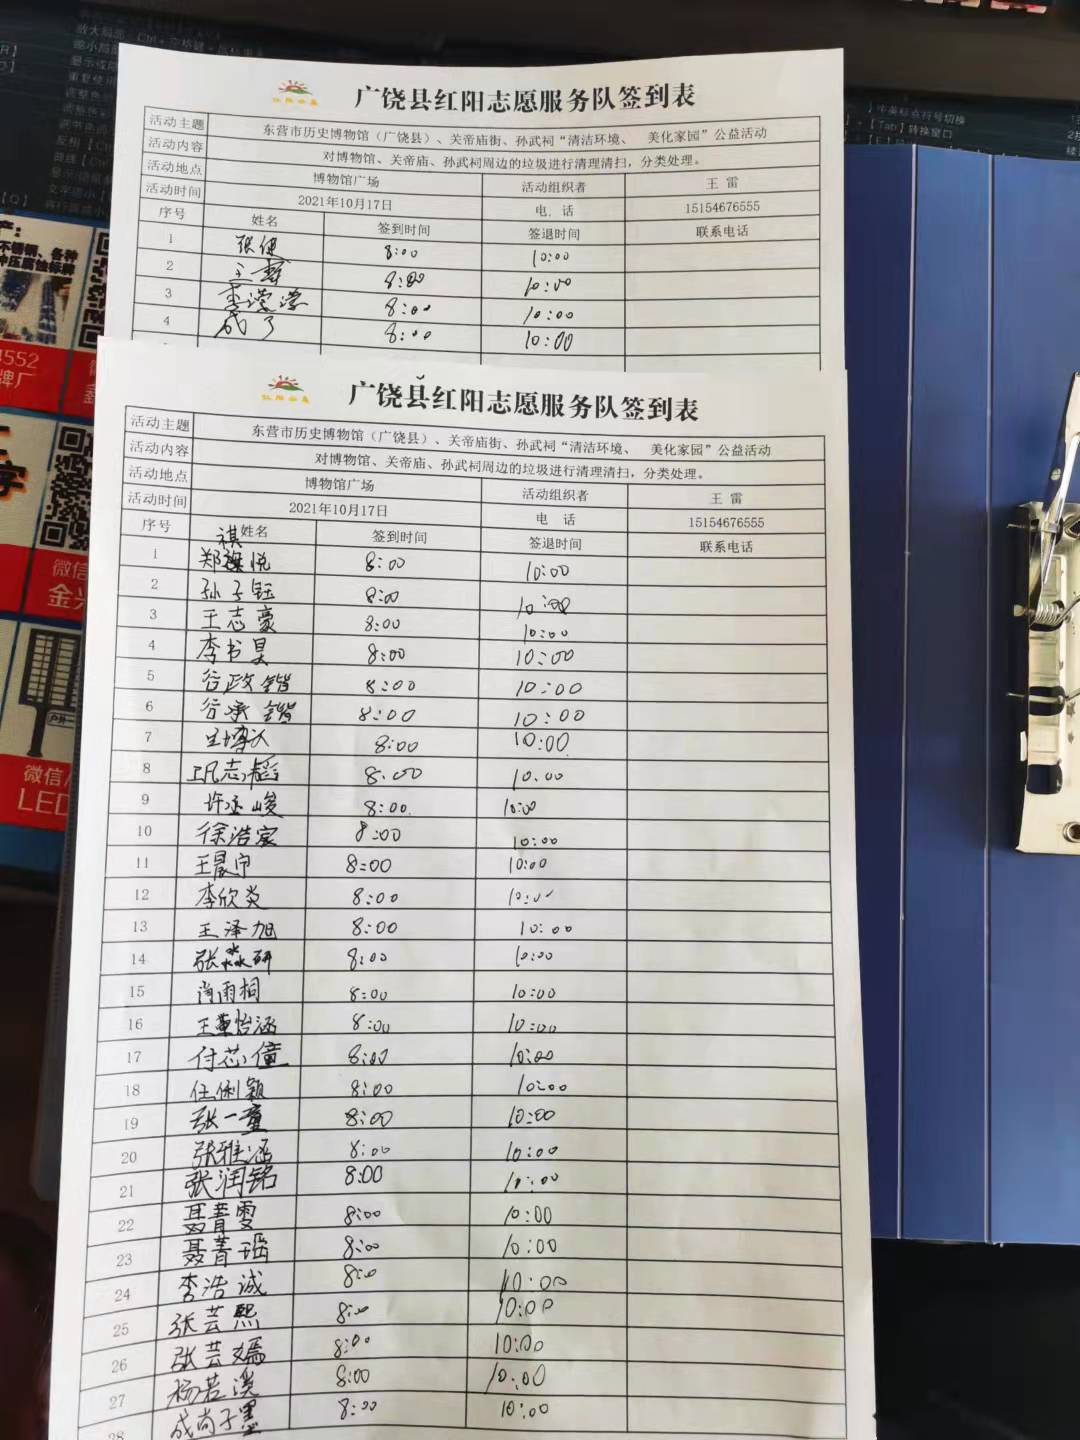 广饶县红阳志愿服务队签到表
活动主题 东营市历史博物馆（广饶县）、关帝庙街、孙武祠“清洁环境、 美化家园”公益活动
活动内容 对博物馆、关帝庙、孙武祠周边的垃圾进行清理清扫，分类处理。
活动地点 博物馆广场 活动组织者 王 雷
活动时间 2021年10月17日 电 话 15154676555
序号 姓名 签到时间 签退时间 联系电话
1 张健 8:00 10:00
2 8:00 10:00
3 李滢滢 8:00 10:00
4 成了 8:00 10:00
广饶县红阳志愿服务队签到表
活动主题 东营市历史博物馆（广饶县）、关帝庙街、孙武祠“清洁环境、 美化家园”公益活动
活动内容 对博物馆、关帝庙、孙武祠周边的垃圾进行清理清扫，分类处理。
活动地点 博物馆广场 活动组织者 王 雷
活动时间 2021年10月17日 电 话 15154676555
序号 姓名 签到时间 签退时间 联系电话
1 郑祺悦 8:00 10:00
2 孙子钰 8:00 10:00
3 王志豪 8:00 10:00
4 李书昊 8:00 10:00
5 谷政锴 8:00 10:00
6 谷承锴 8:00 10:00
7 8:00 10:00
8 8:00 10:00
9 许丞峻 8:00 10:00
10 徐浩宸 8:00 10:00
11 王晨宇 8:00 10:00
12 李欣炎 8:00 10:00
13 王泽旭 8:00 10:00
14 张淼研 8:00 10:00
15 尚雨桐 8:00 10:00
16 王董怡涵 8:00 10:00
17 付芯僮 8:00 10:00
18 任俐颖 8:00 10:00
19 张一童 8:00 10:00
20 张雅涵 8:00 10:00
21 张润铭 8:00 10:00
22 聂菁雯 8:00 10:00
23 聂菁瑶 8:00 10:00
24 李浩诚 8:00 10:00
25 张芸熙 8:00 10:00
26 张芸嫣 8:00 10:00
27 杨若溪 8:00 10:00
28 成尚子墨 8:00 10:00